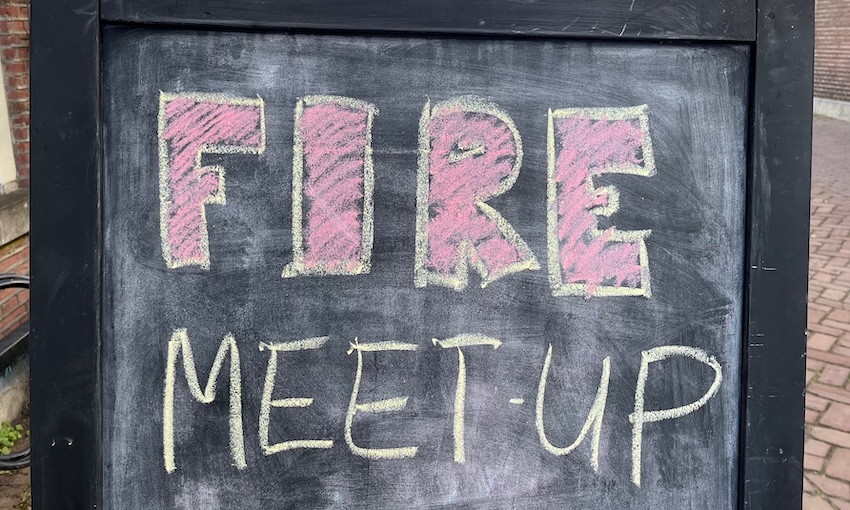 FIRE
MEET-UP